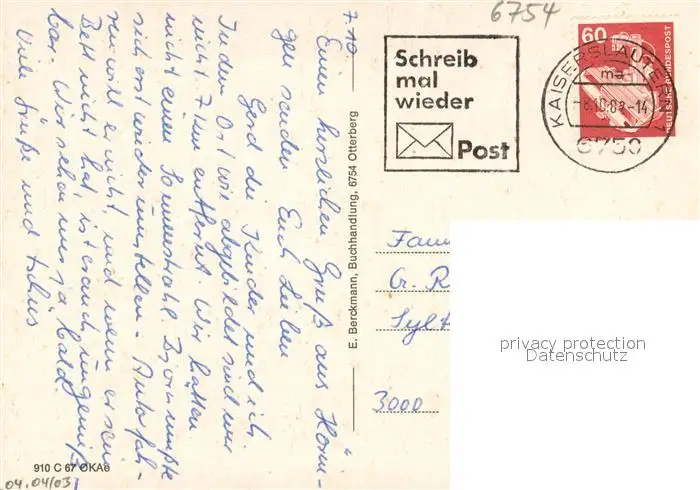 7.10.
Einen herzlichen Gruß aus Höni-
gen senden Euch Lieben
Gerd die Kinder und ich.
In dem Ort wie abgebildet sind wir
nicht 7 km entfernt. Wir hatten
nicht einen Sonnenstrahl. Björn mußte
sich erst wieder umstellen. Auto fah-
ren will er nicht, und wenn er sein
Bett nicht hat, ist er auch ungenieß
bar. Wir sehen uns ja bald
Viele Grüße und tschüs
910 C 67 OKA6
04.04/03
E. Berckmann, Buchhandlung, 6754 Otterberg
6754
Schreib
mal
wieder
Post
60
DEUTSCHE BUNDESPOST
KAISERSLAUTERN 1
ma
-8.10.82-14
6750
Fam
G. R
Sylt
3000
privacy protection
Datenschutz